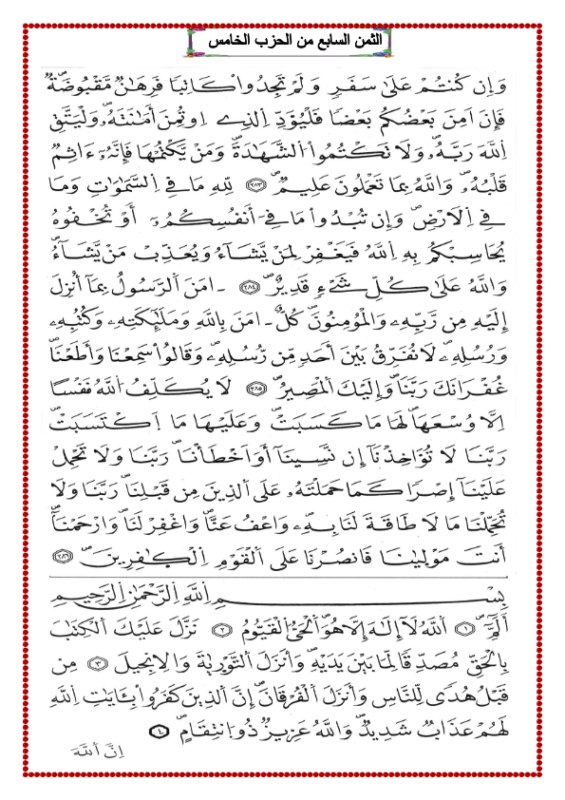 الثمن السابع من الحزب الخامس
وَإِن كُنتُمْ عَلَىٰ سَفَرٍ وَلَمْ تَجِدُواْ كَاتِبًا فَرِهَٰنٌ مَّقْبُوضَةٌ
فَإِنَ اَمِنَ بَعْضُكُم بَعْضًا فَلْيُؤَدِّ الذِے اِو۟تُمِنَ أَمَٰنَتَهُۥ وَلْيَتَّقِ
اِللَّهَ رَبَّهُۥ وَلَا تَكْتُمُواْ الشَّهَٰدَةَ وَمَنْ يَّكْتُمْهَا فَإِنَّهُۥ ءَاثِمٌ
قَلْبُهُۥ وَاللَّهُ بِمَا تَعْمَلُونَ عَلِيمٌ ٢٨٣ لِلهِ مَا فِے السَّمَٰوَٰتِ وَمَا
فِے اِلَارْضِ وَإِن تُبْدُواْ مَا فِےٓ أَنفُسِكُمُۥٓ أَوْ تُخْفُوهُ
يُحَاسِبْكُم بِهِ اِللَّهُ فَيَغْفِرْ لِمَنْ يَّشَآءُ وَيُعَذِّب مَّنْ يَّشَآءُ
وَاللَّهُ عَلَىٰ كُلِّ شَےْءٍ قَدِيرٌ ٢٨٤ ءَامَنَ اَلرَّسُولُ بِمَآ أُنزِلَ
إِلَيْهِ مِن رَّبِّهِۦ وَالْمُومِنُونَ كُلٌّ ـ اٰمَنَ بِاللَّهِ وَمَلَٰٓئِكَتِهِۦ وَكُتُبِهِۦ
وَرُسُلِهِۦ لَا نُفَرِّقُ بَيْنَ أَحَدٍ مِّن رُّسُلِهِۦ وَقَالُواْ سَمِعْنَا وَأَطَعْنَا
غُفْرَانَكَ رَبَّنَا وَإِلَيْكَ اَلْمَصِيرُ ٢٨٥ لَا يُكَلِّفُ اُللَّهُ نَفْسًا
اِلَّا وُسْعَهَا لَهَا مَا كَسَبَتْ وَعَلَيْهَا مَا اَكْتَسَبَتْ
رَبَّنَا لَا تُؤَاخِذْنَآ إِن نَّسِينَآ أَوَ اَخْطَأْنَا رَبَّنَا وَلَا تَحْمِلْ
عَلَيْنَآ إِصْرًا كَمَا حَمَلْتَهُۥ عَلَى الذِينَ مِن قَبْلِنَا رَبَّنَا وَلَا
تُحَمِّلْنَا مَا لَا طَاقَةَ لَنَا بِهِۦ وَاعْفُ عَنَّا وَاغْفِرْ لَنَا وَارْحَمْنَآ
أَنتَ مَوْلَىٰنَا فَانصُرْنَا عَلَى اَلْقَوْمِ اِلْكَٰفِرِينَ ٢٨٦
بِسْمِ اِللَّهِ اِلرَّحْمَٰنِ اِلرَّحِيمِ
أَلَٓمِّٓ ١ اَللَّهُ لَآ إِلَٰهَ إِلَّا هُوَ اَلْحَىُّ اُلْقَيُّومُ ٢ نَزَّلَ عَلَيْكَ اَلْكِتَٰبَ
بِالْحَقِّ مُصَدِّقًا لِّمَا بَيْنَ يَدَيْهِ وَأَنزَلَ اَلتَّوْرَىٰةَ وَالِانجِيلَ ٣ مِن
قَبْلُ هُدًى لِّلنَّاسِ وَأَنزَلَ اَلْفُرْقَانَ إِنَّ اَلذِينَ كَفَرُواْ بِـَٔايَٰتِ اِللَّهِ
لَهُمْ عَذَابٌ شَدِيدٌ وَاللَّهُ عَزِيزٌ ذُو اُنتِقَامٍ ٤
إِنَّ اَللَّهَ